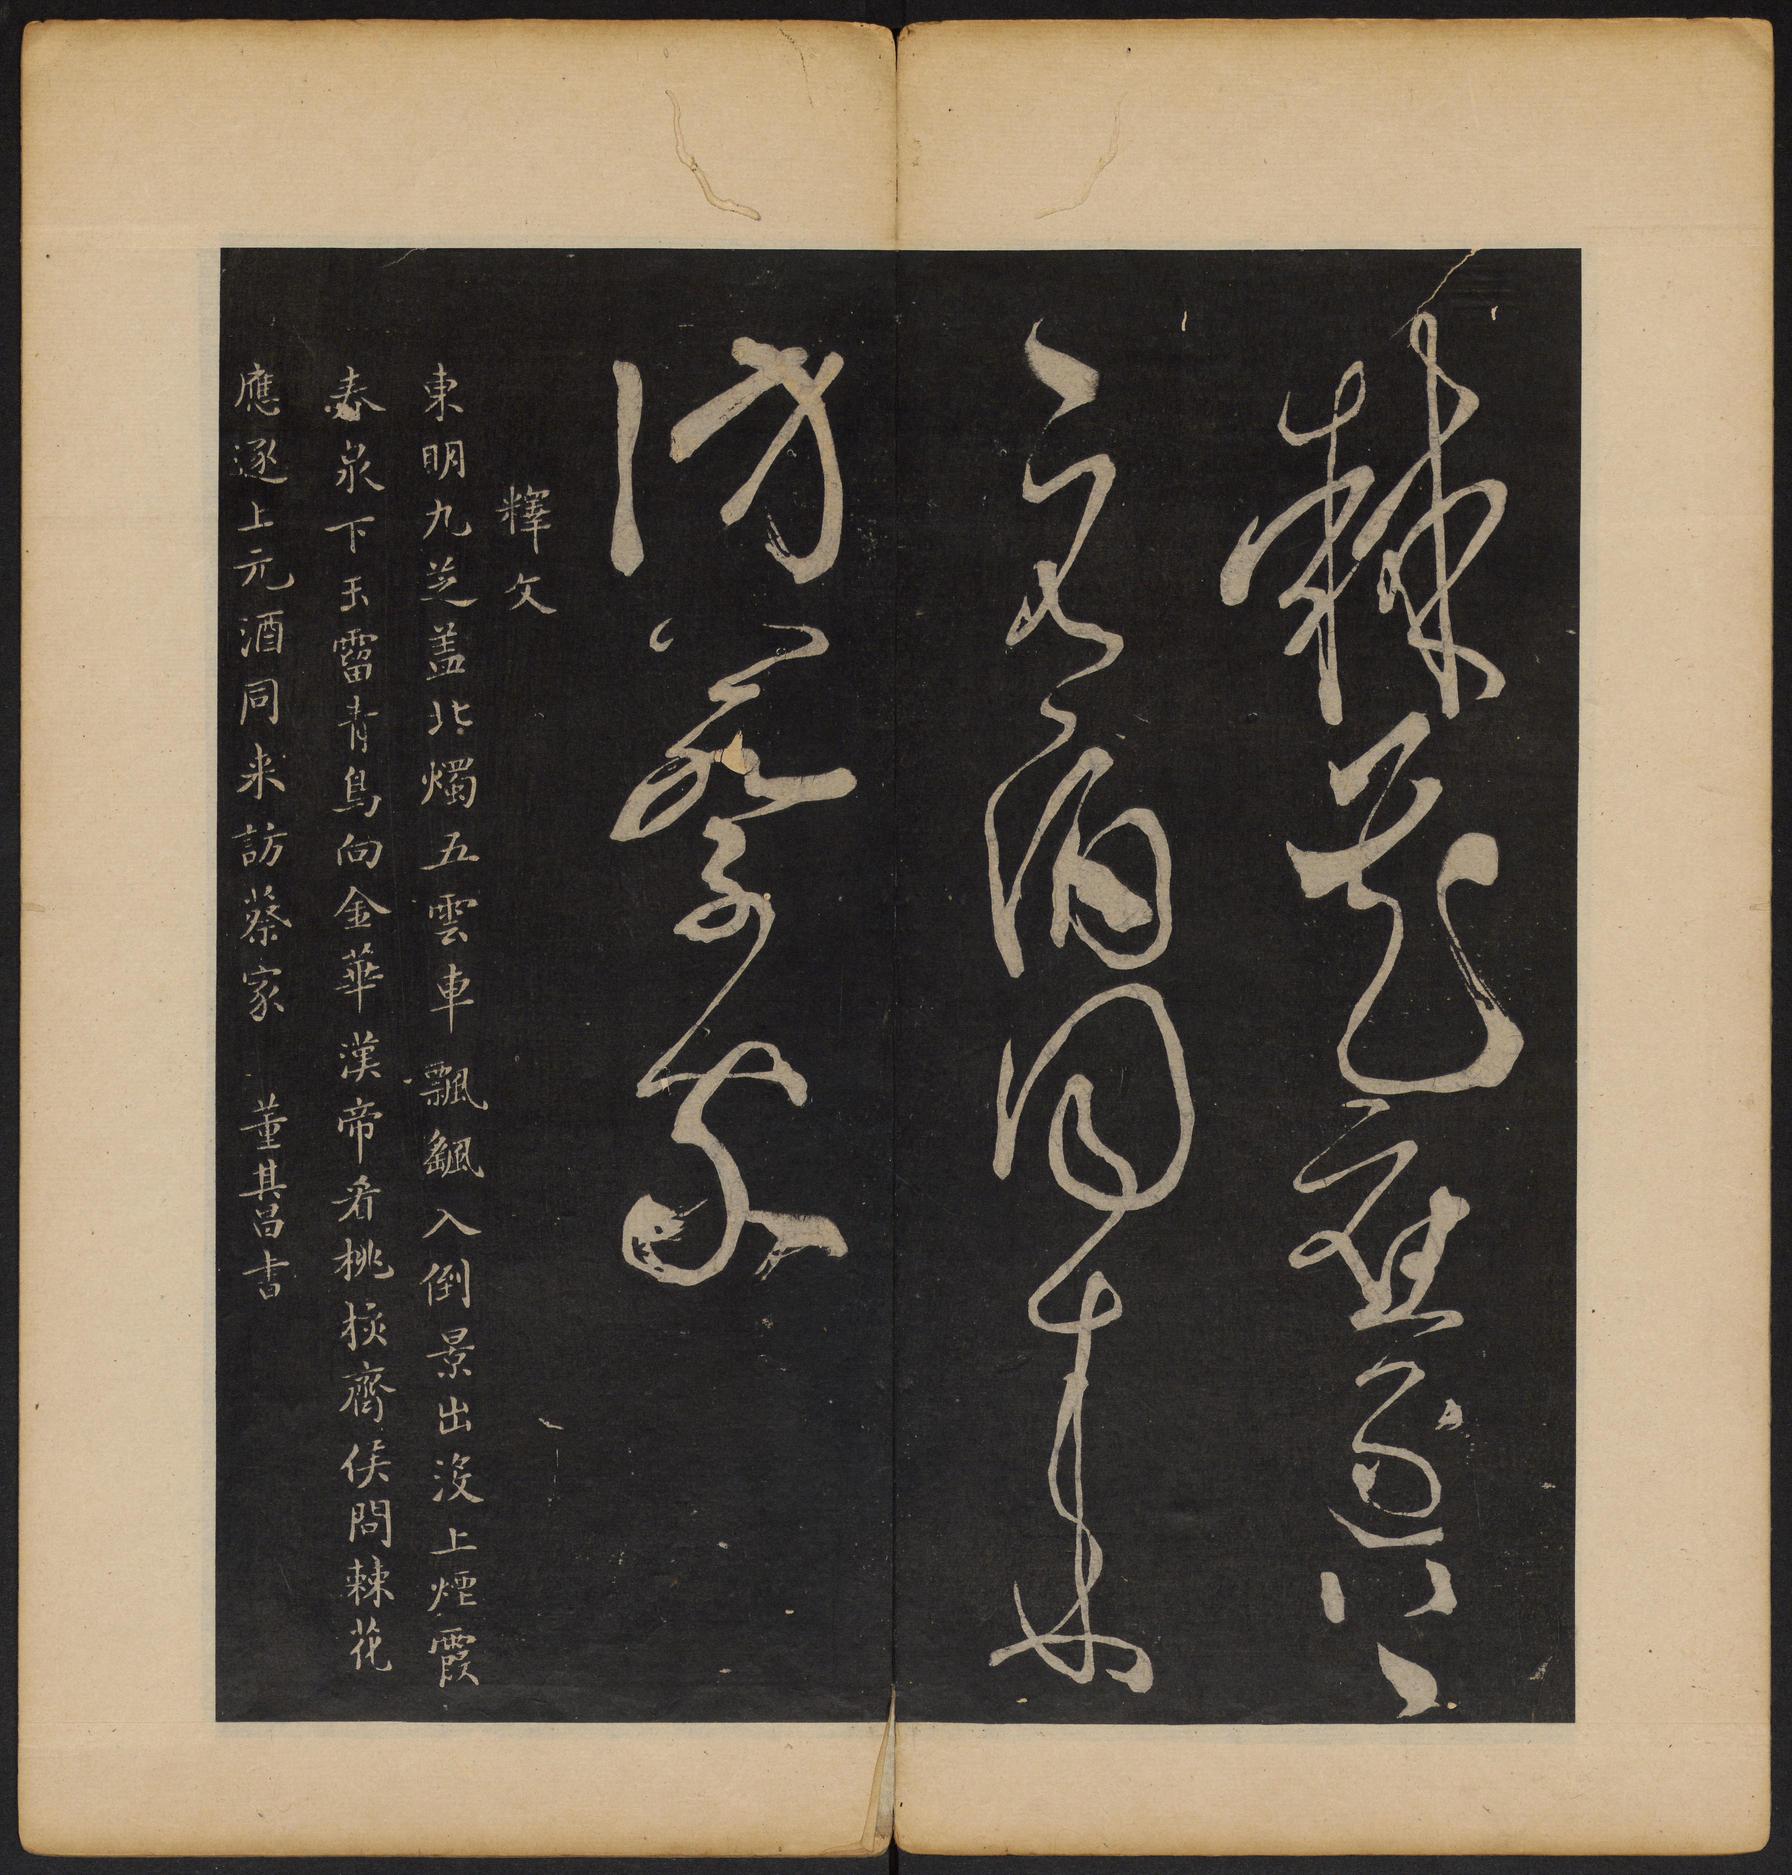 棘花應逐上
元酒同来
訪蔡家
釋文
東明九芝盖北燭五雲車飄颻入倒景出没上煙霞
春泉下玉霤青鳥向金華漢帝看桃核齊侯問棘花
應逐上元酒同来訪蔡家 董其昌書